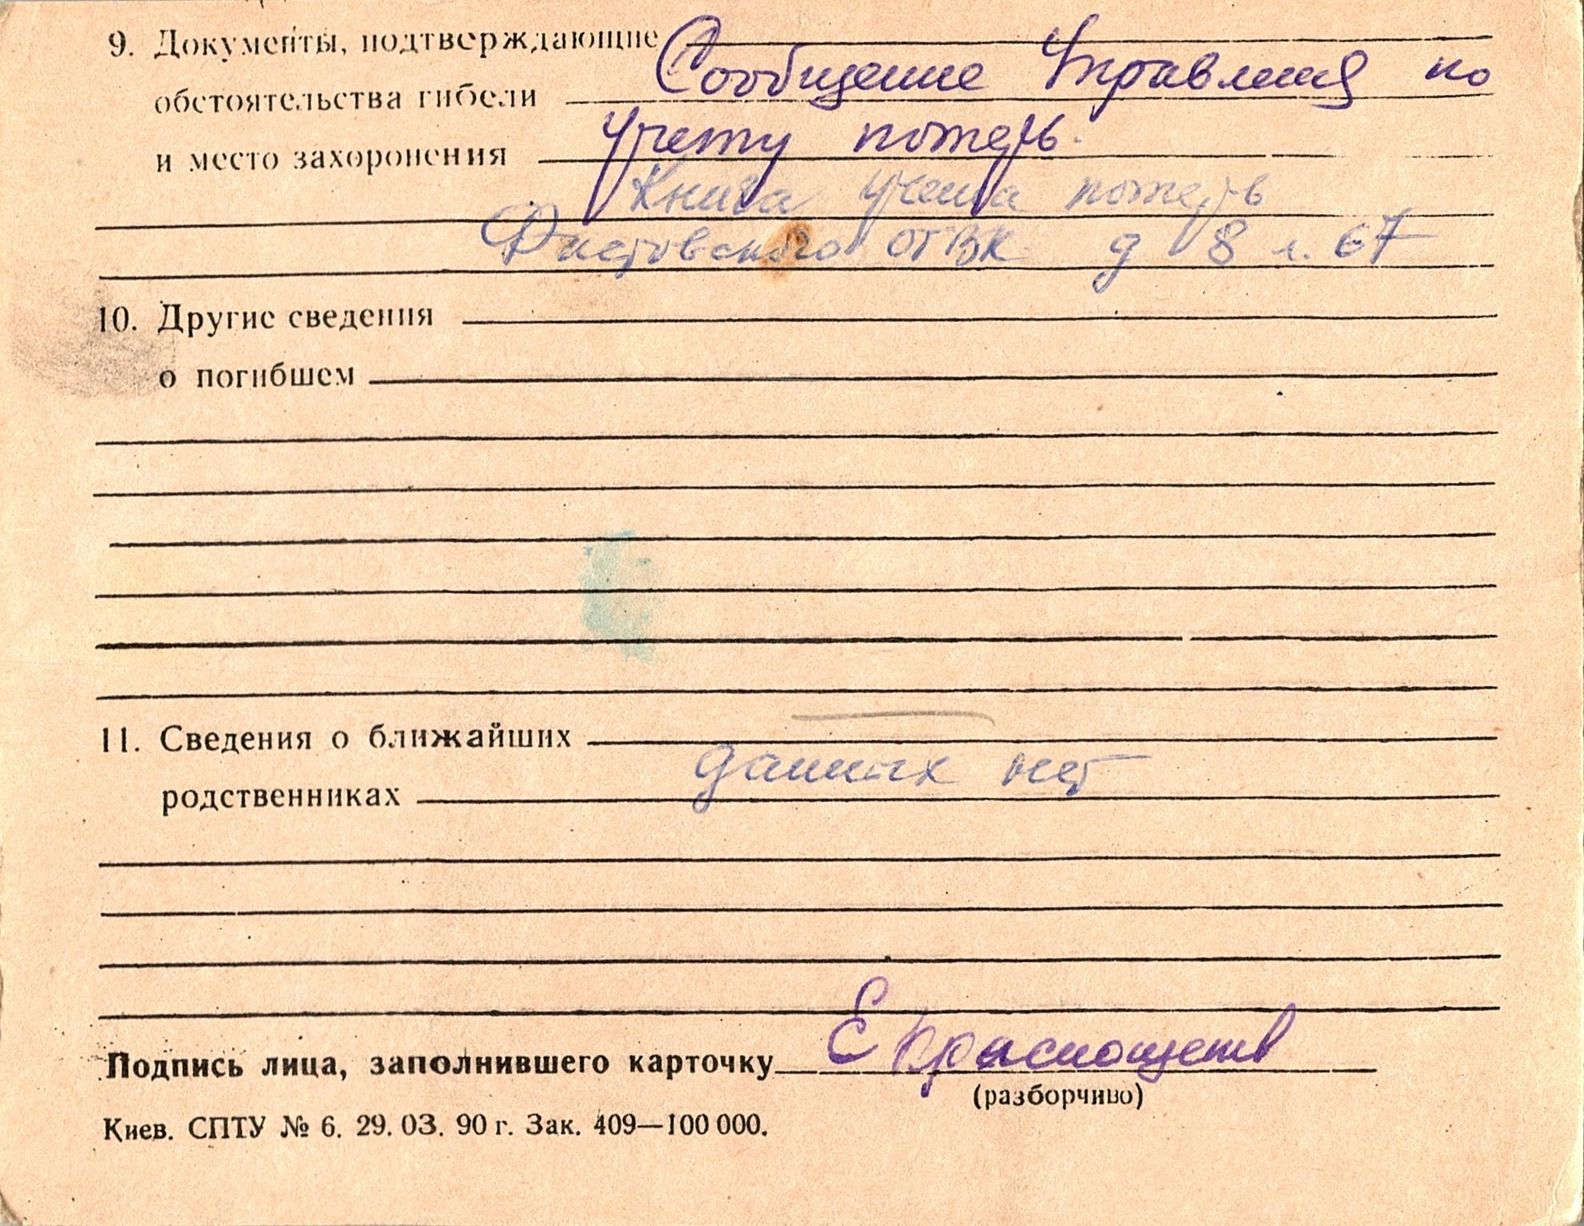 9. Документы, подтверждающие
Сообщение Управления по
обстоятельства гибели
учету потерь.
и место захоронения
Книга учета потерь
Фастовского ОГВК д 8 л. 67
10. Другие сведения
о погибшем
11. Сведения о ближайших
данных нет
родственниках
Подпись лица, заполнившего карточку Е
(разборчиво)
Киев. СПТУ № 6. 29. 03. 90 г. Зак. 409—100 000.